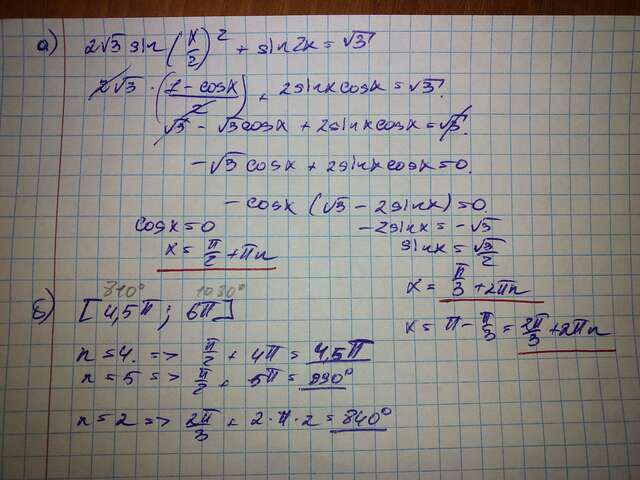 а) 2√3 sin(x/2)² + sin2x = √3
2√3 · (1 - cosx / 2) + 2sinxcosx = √3.
√3 - √3cosx + 2sinxcosx = √3.
-√3 cosx + 2sinxcosx = 0.
-cosx (√3 - 2sinx) = 0.
cosx = 0
-2sinx = -√3
sinx = √3/2
x = π/2 + πn
x = π/3 + 2πn
x = π - π/3 = 2π/3 + 2πn
810° 1080°
б) [4,5π ; 6π]
n = 4. => π/2 + 4π = 4,5π
n = 5 => π/2 + 5π = 990°
n = 2 => 2π/3 + 2·π·2 = 840°